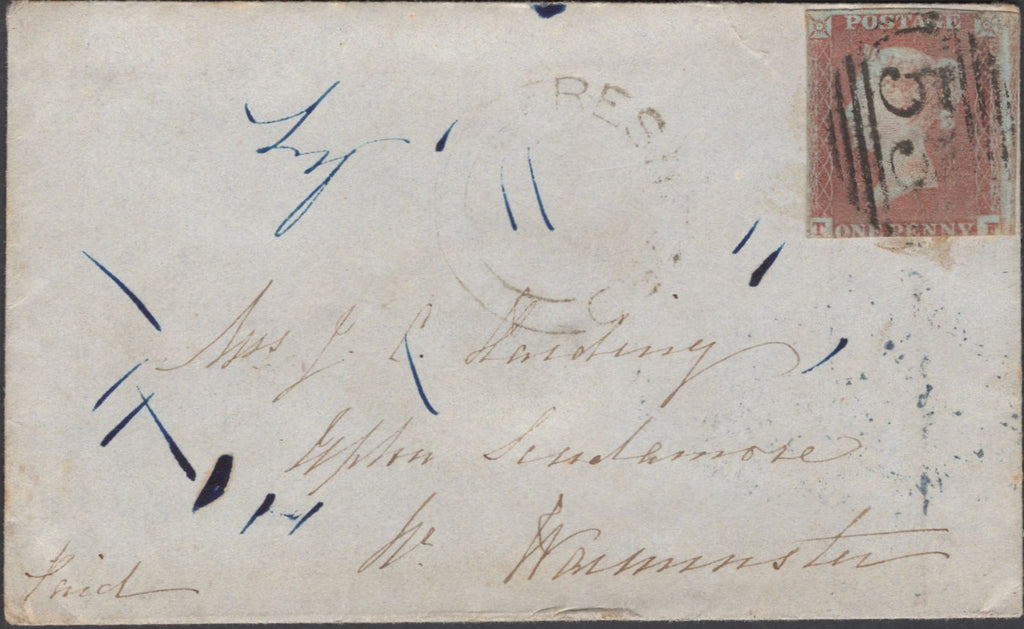 POSTAGE
T ONE PENNY F
Mrs J. C. Harding
Upton Scudamore
Nr. Warminster
Paid